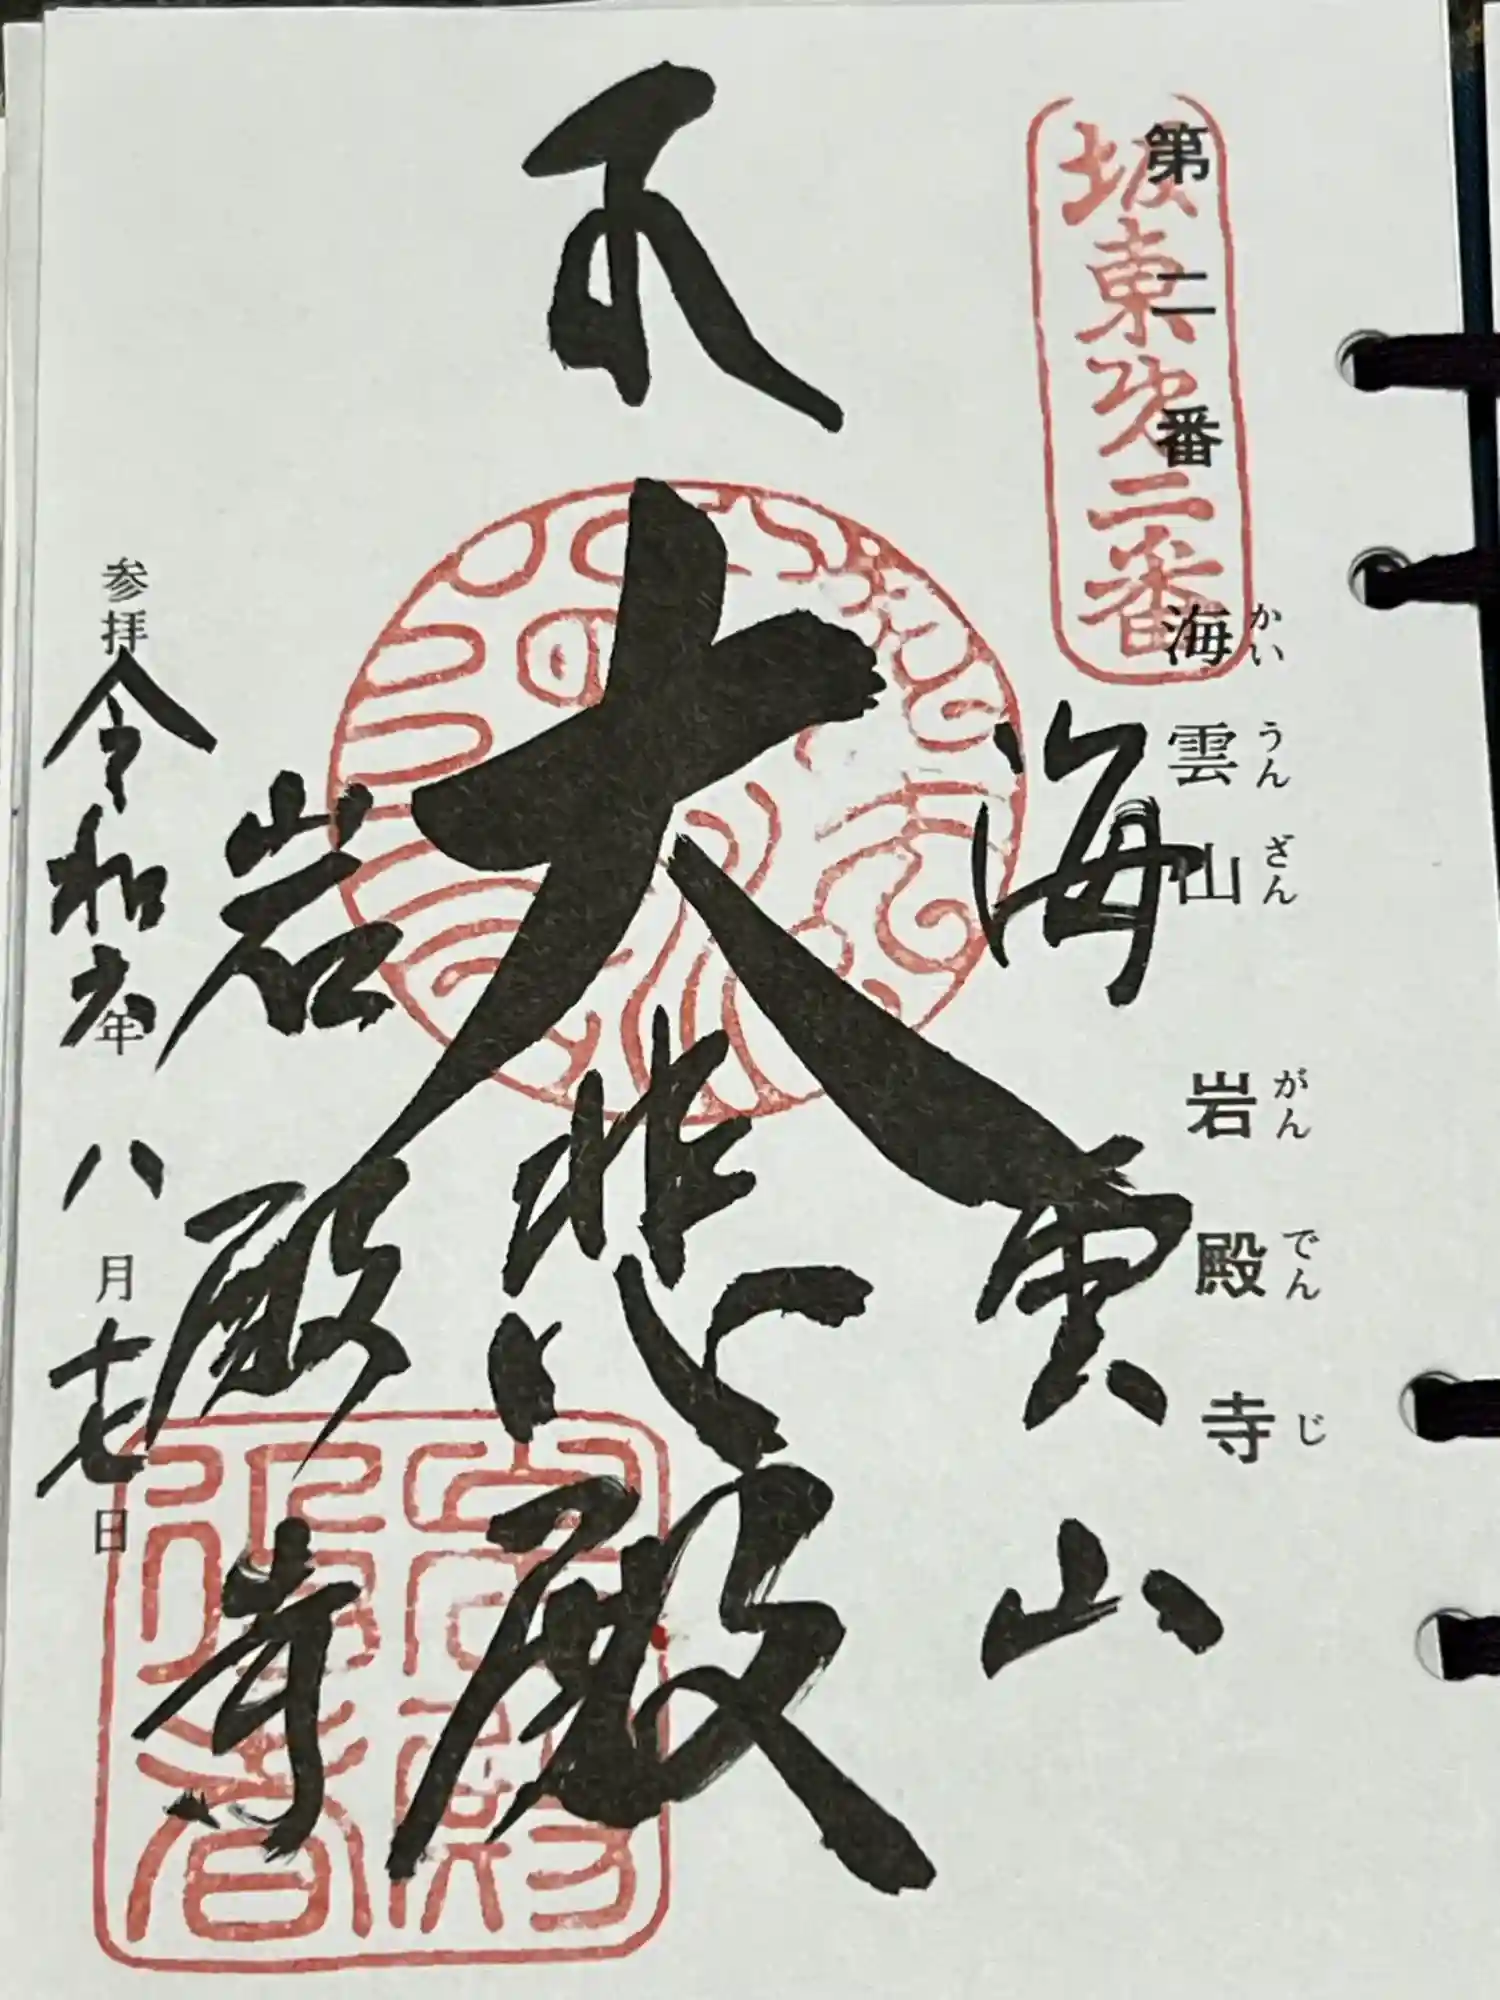 かいうんざん がんでんじ
第二番 海雲山 岩殿寺
坂東第二番
海雲山
大悲殿
岩殿寺
参拝 令和六年 八月十七日